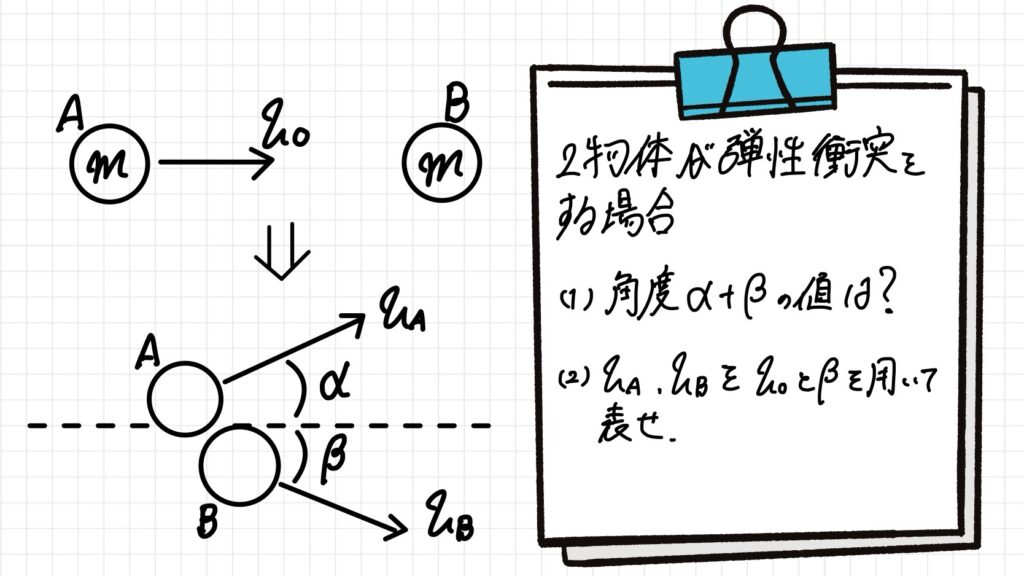 A
m
v₀
B
m
A
v_A
α
β
B
v_B
2物体が弾性衝突を
する場合
(1) 角度α+βの値は?
(2) v_A, v_Bをv₀とβを用いて
表せ.